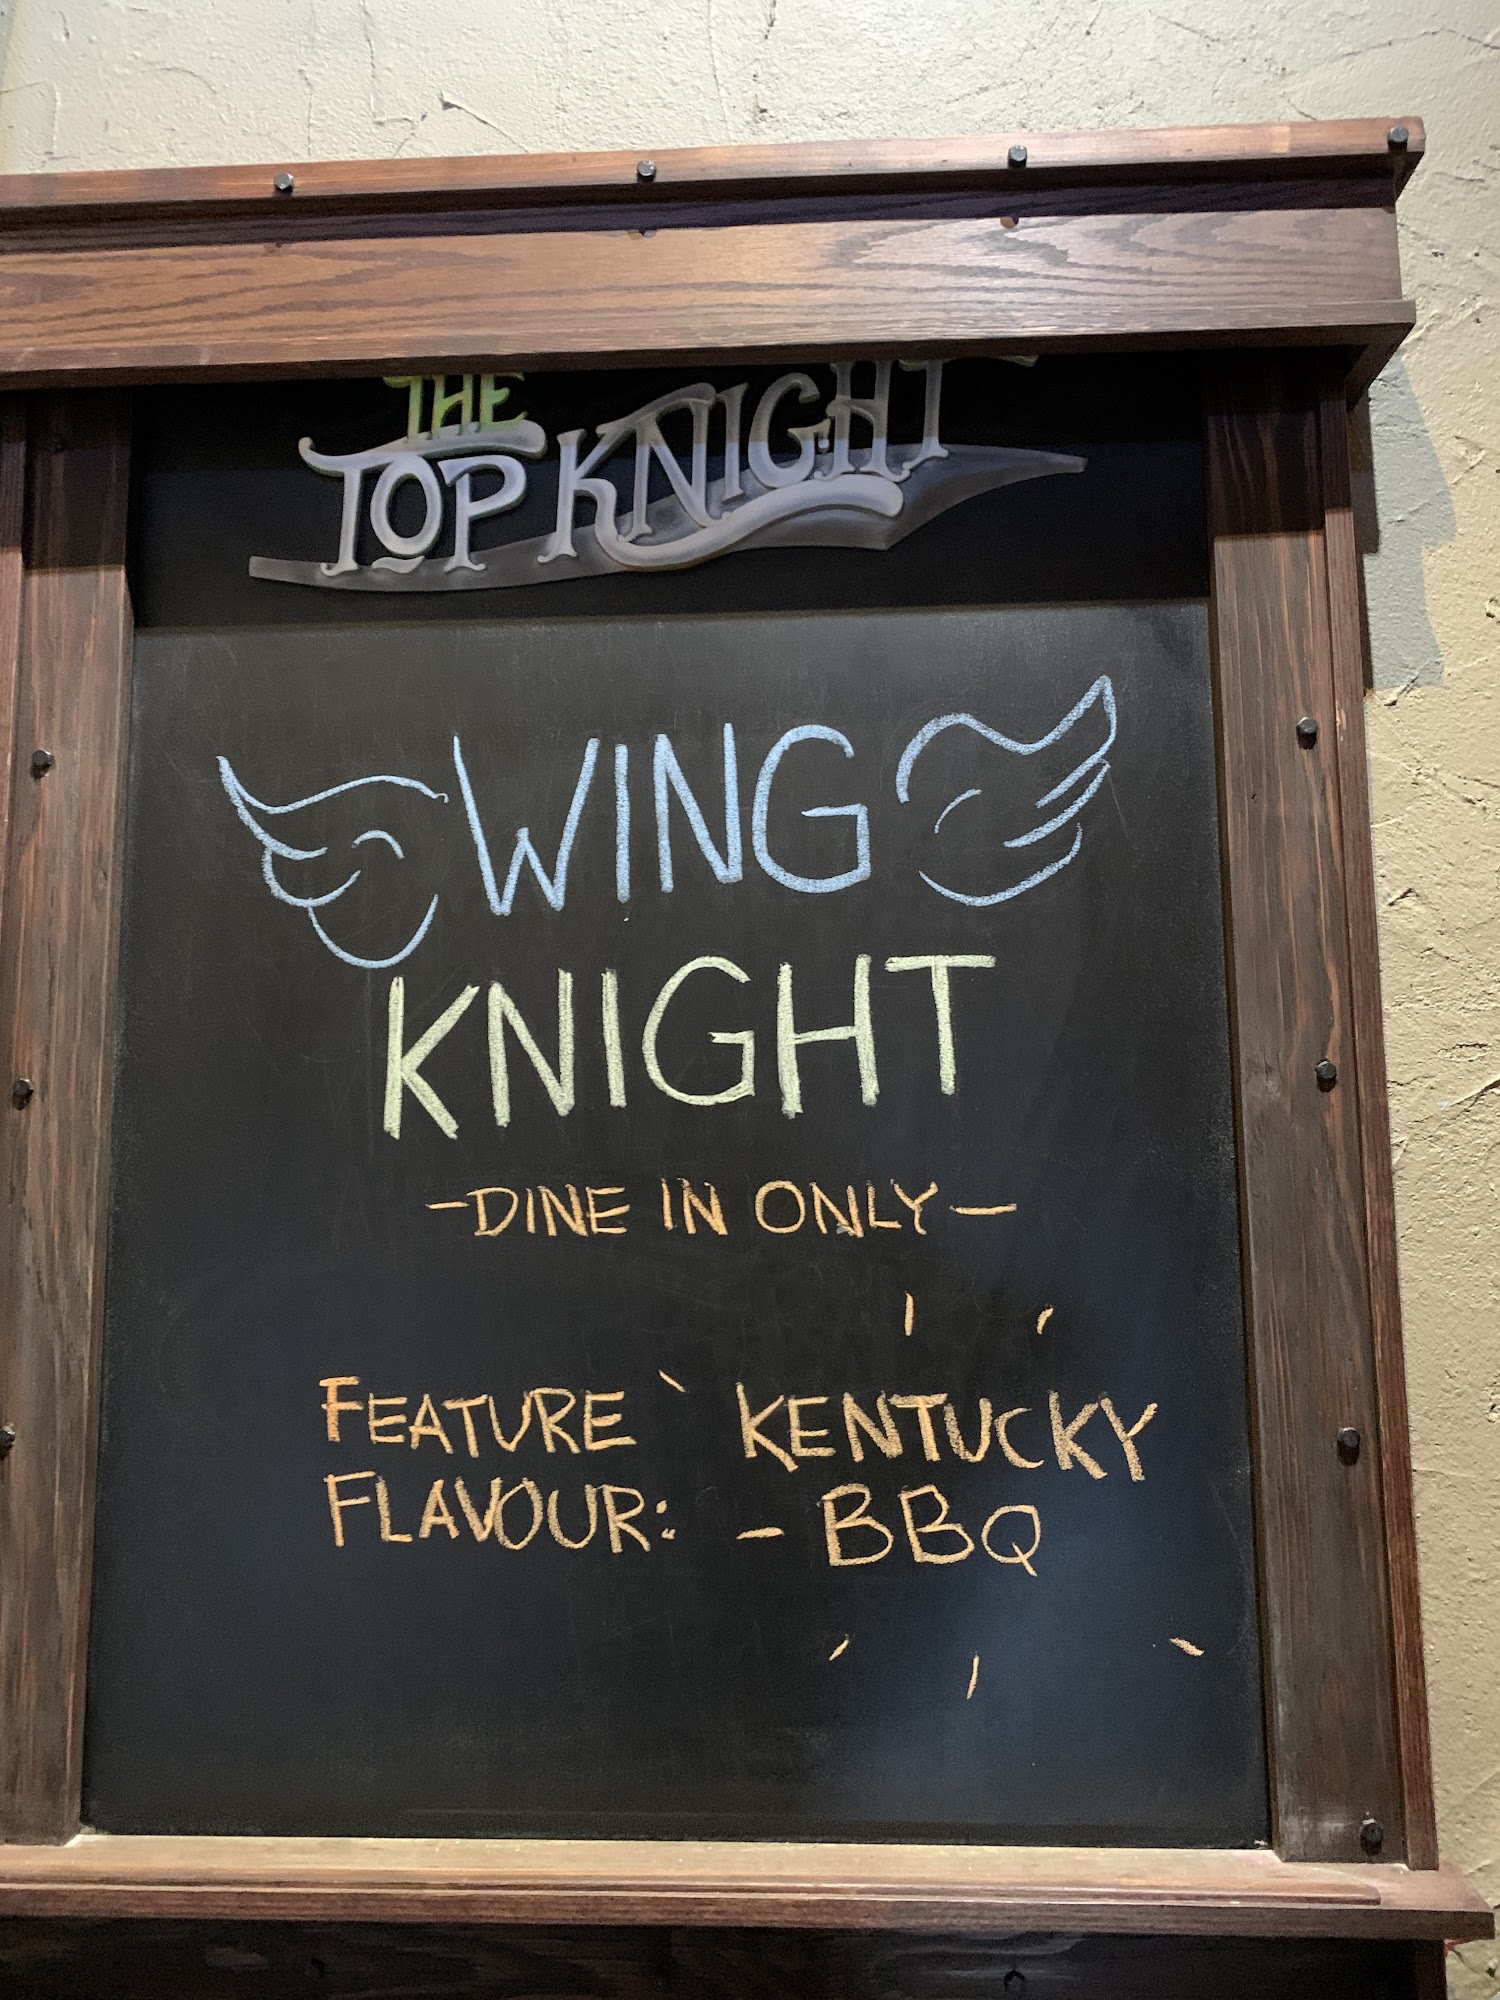 THE
TOP KNIGHT
WING
KNIGHT
-DINE IN ONLY-
FEATURE KENTUCKY
FLAVOUR: -BBQ